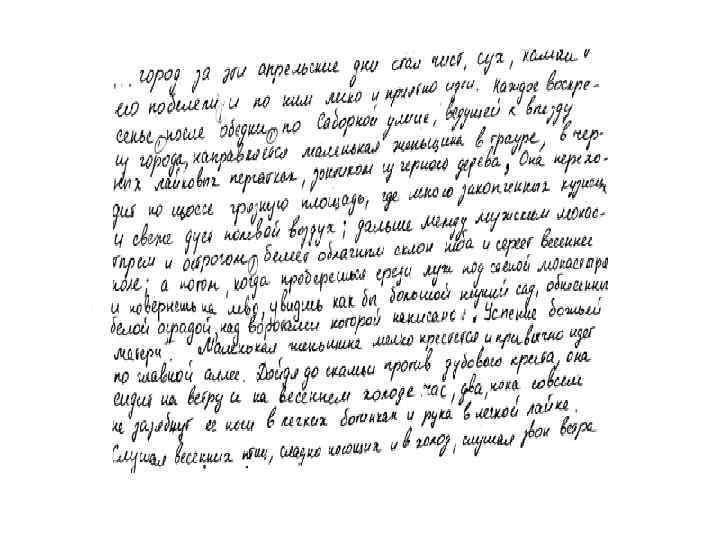 ... город за эти апрельские дни стал чист, сух, камни
его побелели, и по ним легко и приятно идти. Каждое воскре-
сенье, после обедни, по Соборной улице, ведущей к выезду
из города, направляется маленькая женьщина в трауре, в чер-
ных лайковых перчатках, зонтиком из черного дерева. Она перехо-
дит по шоссе грязную площадь, где много закопченных кузниц
и свеже дует полевой воздух; дальше между мужским монас-
тырем и острогом, белеет облачный склон неба и сереет весеннее
поле; а потом, когда проберешься среди луж под стеной монастыря
и повернешь на лево, увидишь как бы большой низкий сад, обнесенный
белой оградой, над воротами которой написано: "Успение божьей
матери". Маленькая женьщина мелко крестится и привычно идет
по главной аллее. Дойдя до скамьи против дубового креста, она
сидит на ветру и на весеннем холоде час, два, пока совсем
не зазябнут ее ноги в легких ботинках и рука в легкой лайке.
Слушая весенних птиц, сладко поющих и в холод, слушая звон ветра